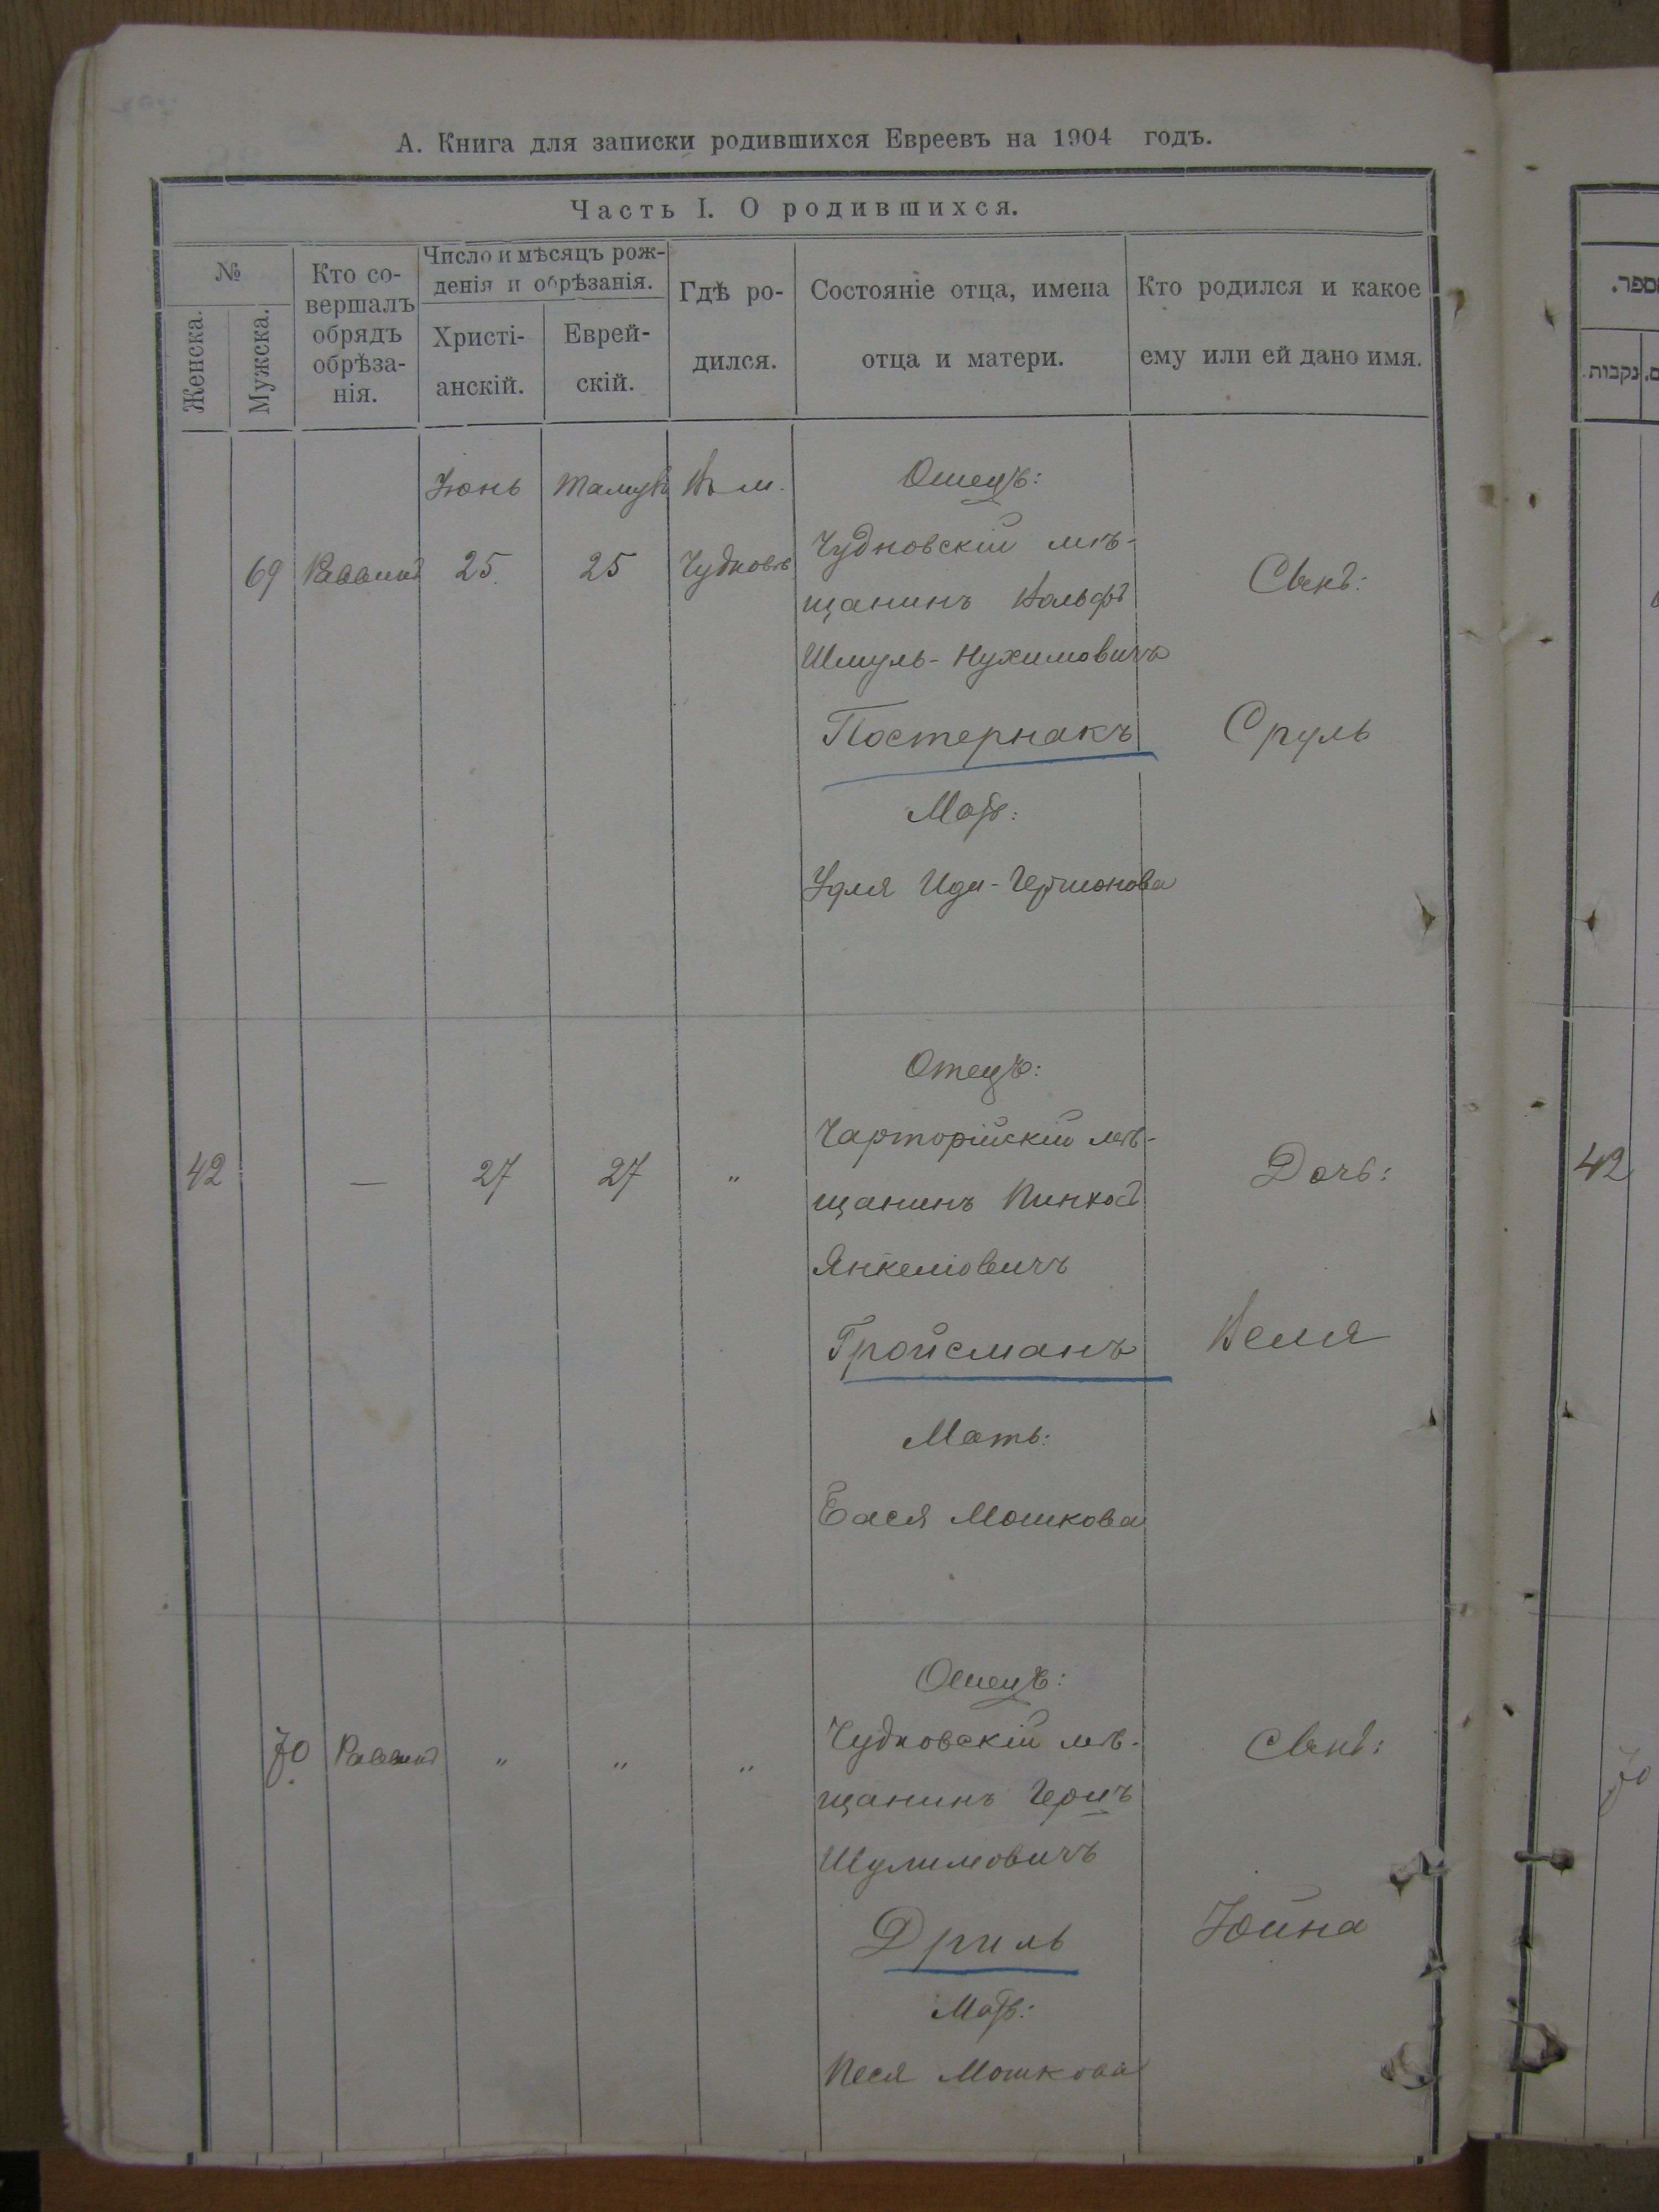 А. Книга для записки родившихся Евреевъ на 1904 годъ.
Часть I. О родившихся.
№
Женска.
Мужска.
Кто со-
вершалъ
обрядъ
обрѣза-
нія.
Число и мѣсяцъ рож-
денія и обрѣзанія.
Христі-
анскій.
Еврей-
скій.
Гдѣ ро-
дился.
Состояніе отца, имена
отца и матери.
Кто родился и какое
ему или ей дано имя.
69
Раввинъ
Іюнь
25
Тамузъ
25
Въ м.
Чудновѣ
Отецъ:
Чудновскій мѣ-
щанинъ Вольфъ
Шмуль-Нухимовичъ
Постернакъ
Мать:
Удля Иди-Гершонова
Сынъ:
Сруль
42
—
27
27
"
Отецъ:
Чарторійскій мѣ-
щанинъ Пинхосъ
Янкеліовичъ
Гройсманъ
Мать:
Бася Мошкова
Дочь:
Веля
70
Раввинъ
"
"
"
Отецъ:
Чудновскій мѣ-
щанинъ Гершъ
Шулимовичъ
Дриль
Мать:
Песя Мошкова
Сынъ:
Юйна
נקבות.
42
70